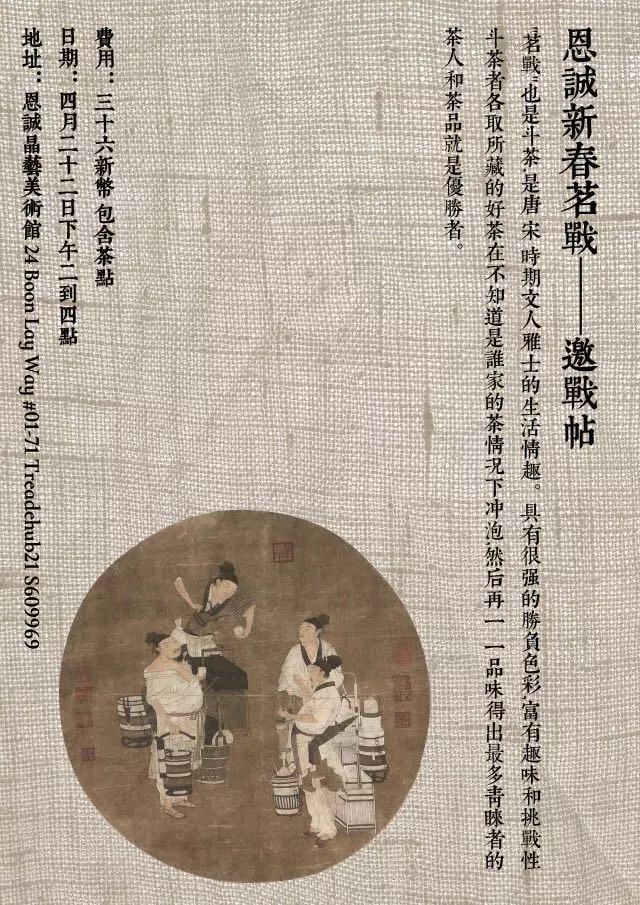 恩誠新春茗戰——邀戰帖
“茗戰”也是斗茶,是唐宋時期文人雅士的生活情趣。具有很强的勝負色彩,富有趣味和挑戰性
斗茶者各取所藏的好茶在不知道是誰家的茶情况下冲泡,然后再一一品味得出最多青睞者的
茶人和茶品就是優勝者。
費用：三十六新幣 包含茶點
日期：四月二十二日下午二到四點
地址：恩誠晶藝美術館 24 Boon Lay Way #01-71 Treadehub21 S609969